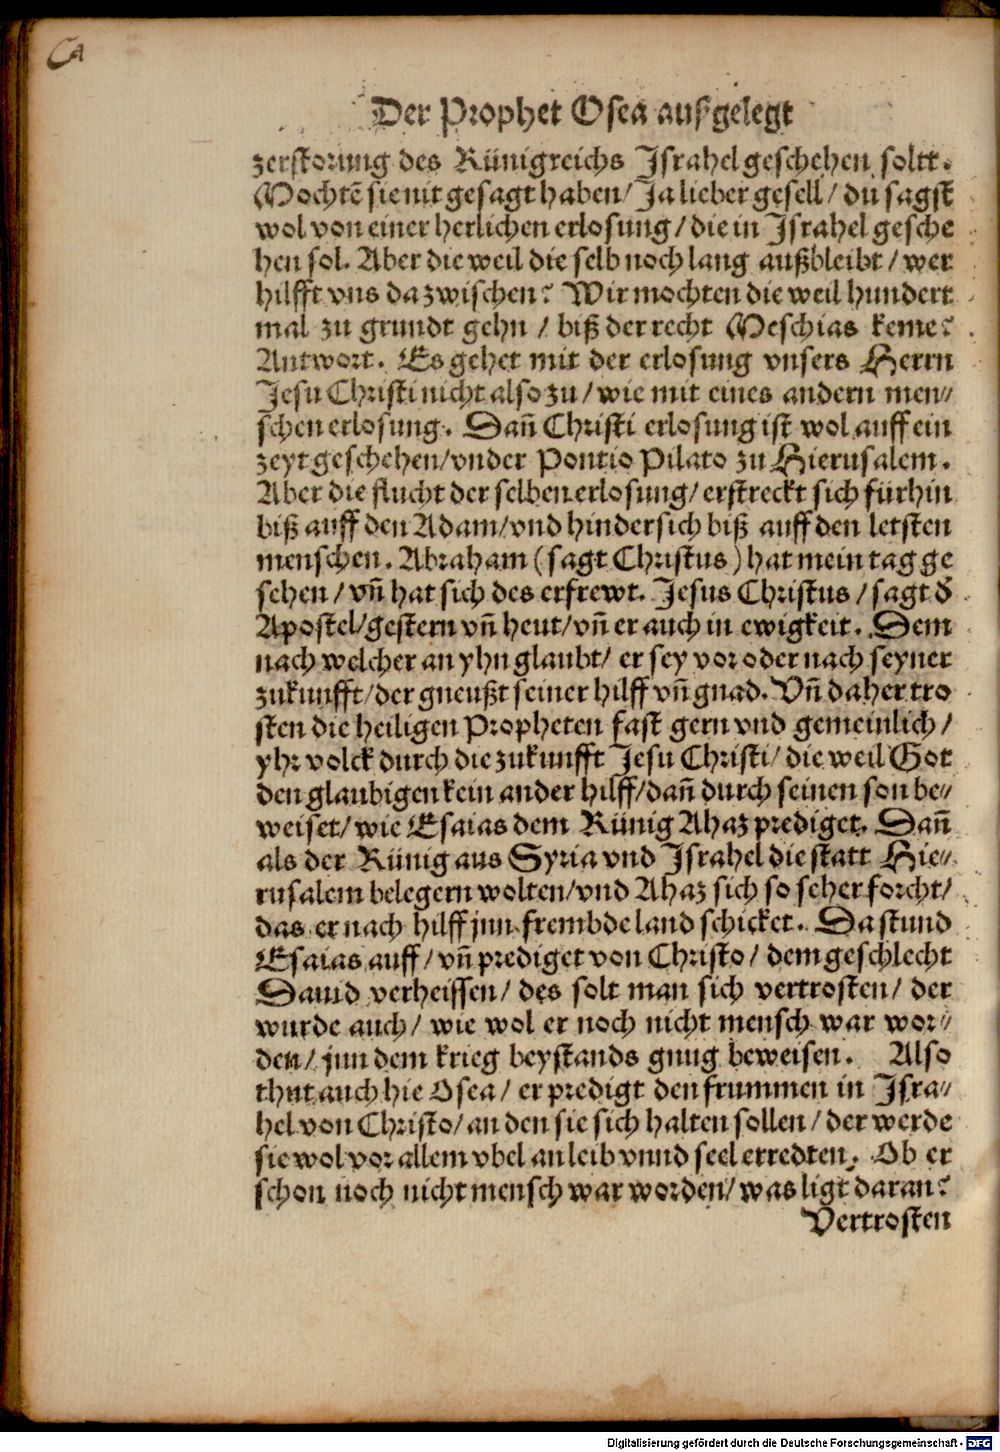 CA
Der Prophet Osea außgelegt
zerstorung des Künigreichs Israhel geschehen soltt.
Mochtē sie nit gesagt haben/ Ja lieber gesell/ du sagst
wol von einer herlichen erlosung/ die in Israhel gesche
hen sol. Aber die weil die selb noch lang außbleibt/ wer
hilfft vns dazwischen? Wir mochten die weil hundert
mal zu grundt gehn / biß der recht Meschias keme?
Antwort. Es gehet mit der erlosung vnsers Herrn
Jesu Christi nicht also zu/ wie mit eines andern men⸗
schen erlosung. Dañ Christi erlosung ist wol auff ein
zeyt geschehen/ vnder Pontio Pilato zu Hierusalem.
Aber die flucht der selben erlosung/ erstreckt sich fürhin
biß auff den Adam/ vnd hindersich biß auff den letsten
menschen. Abraham (sagt Christus) hat mein tag ge
sehen/ vñ hat sich des erfrewt. Jesus Christus/ sagt d̕
Apostel/ gestern vñ heut/ vñ er auch in ewigkeit. Dem
nach welcher an yhn glaubt/ er sey vor oder nach seyner
zukunfft/ der gneußt seiner hilff vñ gnad. Vñ daher tro
sten die heiligen Propheten fast gern vnd gemeinlich/
yhr volck durch die zukunfft Jesu Christi/ die weil Got
den glaubigen kein ander hilff/ dañ durch seinen son be⸗
weiset/ wie Esaias dem Künig Ahaz prediget. Dañ
als der Künig aus Syria vnd Israhel die statt Hie⸗
rusalem belegern wolten/ vnd Ahaz sich so seher forcht/
das er nach hilff jnn frembde land schicket. Da stund
Esaias auff/ vñ prediget von Christo/ dem geschlecht
Dauid verheissen/ des solt man sich vertrosten/ der
wurde auch/ wie wol er noch nicht mensch war wor⸗
den/ jnn dem krieg beystands gnug beweisen. Also
thut auch hie Osea/ er predigt den frummen in Isra⸗
hel von Christo/ an den sie sich halten sollen/ der werde
sie wol vor allem vbel an leib vnnd seel erredten. Ob er
schon noch nicht mensch war worden/ was ligt daran?
Vertrosten
Digitalisierung gefördert durch die Deutsche Forschungsgemeinschaft - DFG